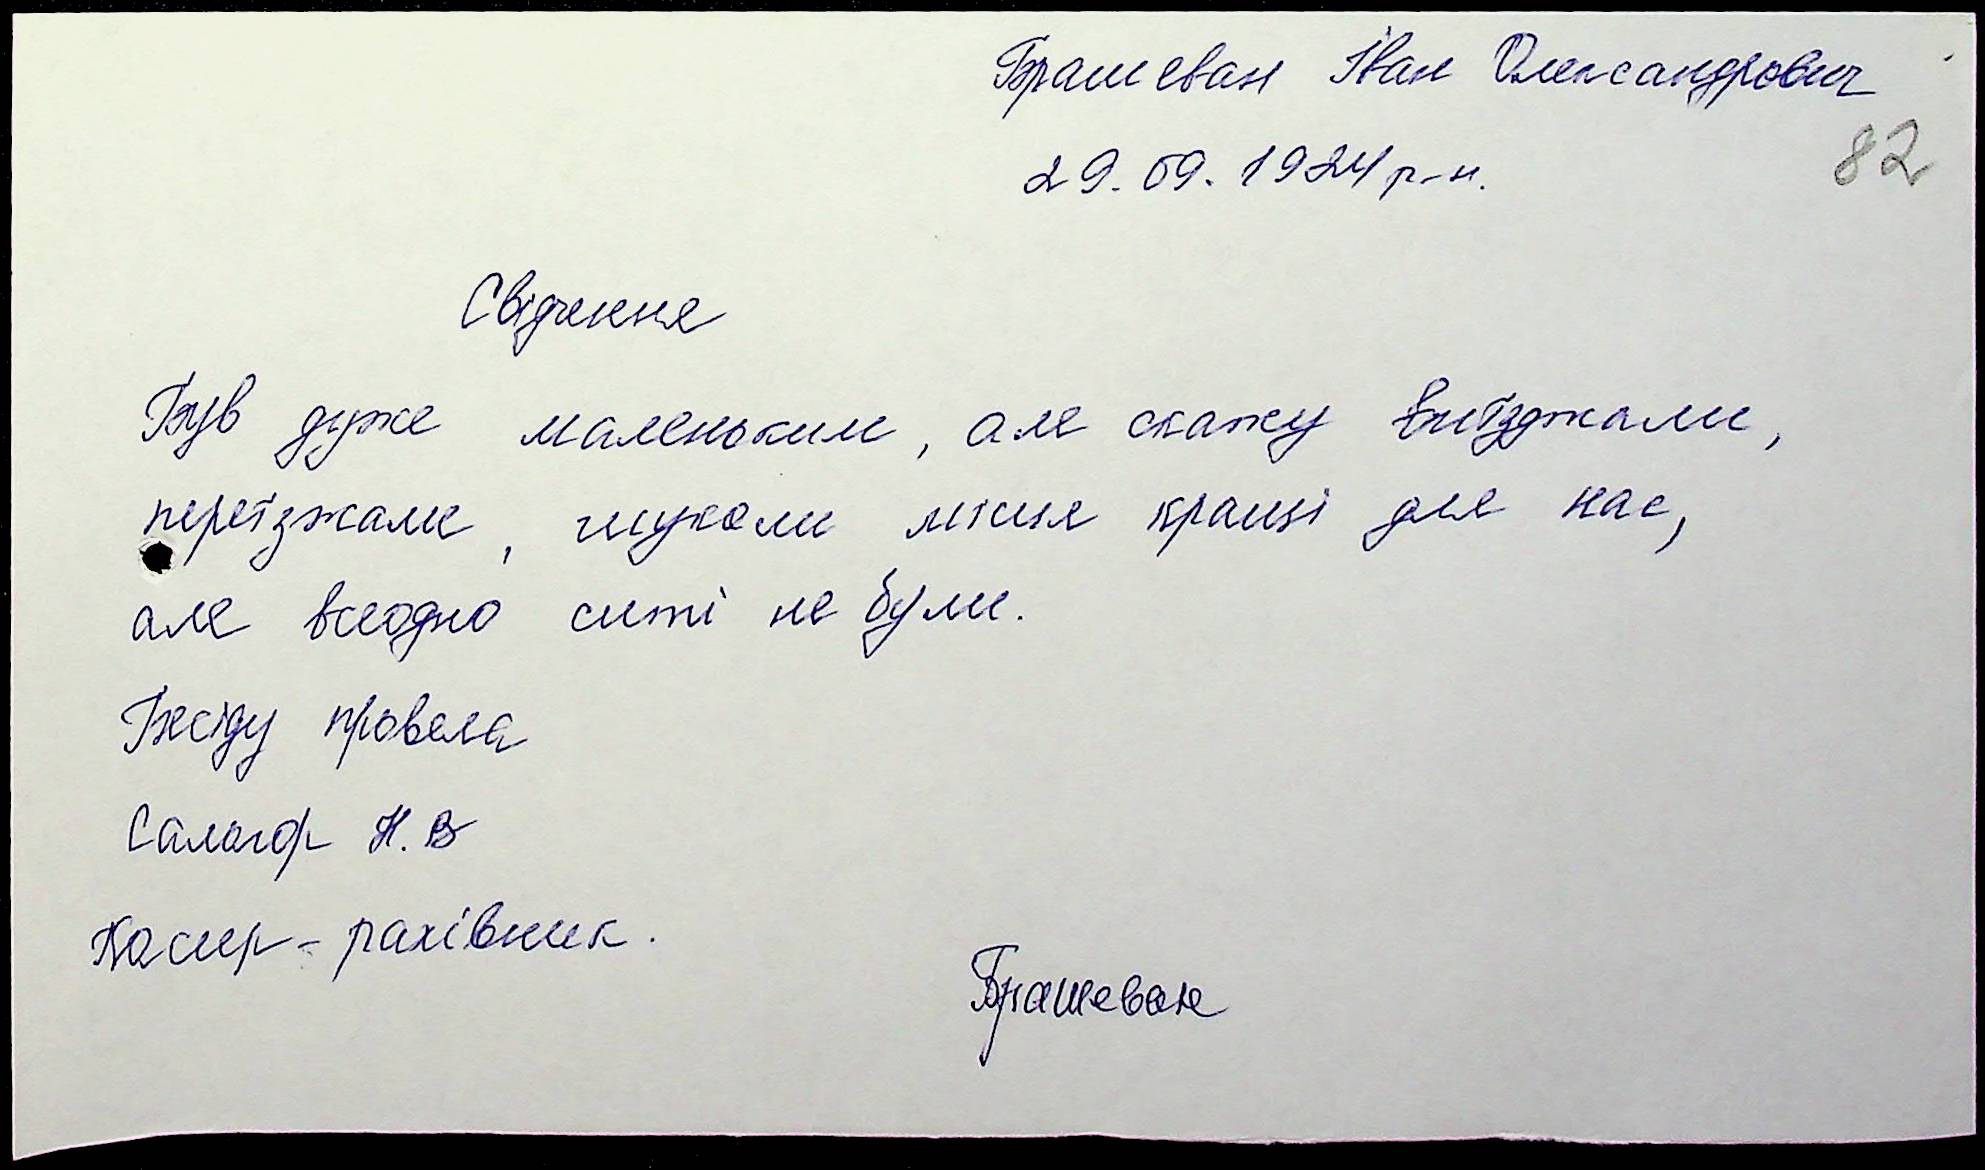 Брашеван Іван Олександрович
29.09.1924 р-н.
82
Свідчення
Був дуже маленьким, але скажу виїзджали,
переїзжали, шукали місця кращі для нас,
але всеодно ситі не були.
Бесіду провела
Салогор Н.В
Касир-рахівник.
Брашеван